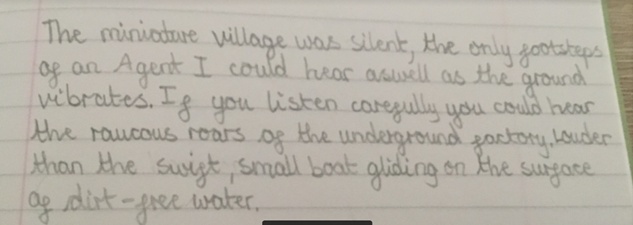 The miniature village was silent, the only footsteps
of an Agent I could hear aswell as the ground
vibrates. If you listen carefully you could hear
the raucous roars of the underground factory. Louder
than the swift, small boat gliding on the surface
of dirt-free water.